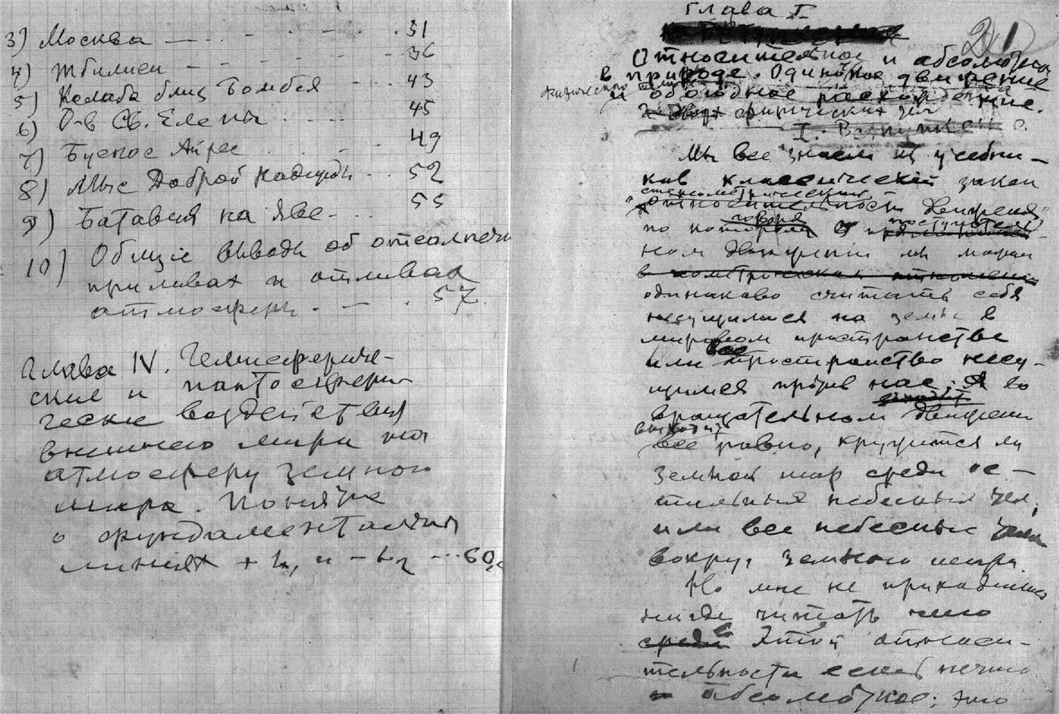 3) Москва — — - - - . 31
36
4) Тбилиси - - - -
5) Келаба близ Бомбея 43
6) О-в Св. Елены - - - 45
7) Буенос Айрес - - - 49
8) Мыс Доброй надежды - - 52
9) Батавия на Яве - - - 55
10) Общие выводы об
приливах и отливах
атмосферы. — - . 57.
Глава IV. Гемисфериче-
ские и пантосфери-
ческие воздействия
внешнего мира на
атмосферу земного
шара. Понятие
о фундаментальных
линиях + h, и - h ... 60.
Глава I
21
Относительное и абсолютное
в природе. Одинокое движение
физических тел
I.
Мы все знаем из учебни-
ков классический закон
"относительности движения",
по которому говоря о
ном движении мы можем
одинаково считать себя
несущимися на земле в
мировом пространстве
или все пространство несу-
щимся против нас. А во
вращательном движении
выходит,
все равно, кружится ли
земной шар среди ос-
тальных небесных тел,
или все небесные тела
вокруг земного шара.
Но мне не приходилось
нигде читать
среди в этой относи-
тельности есть нечто
и абсолютное; это